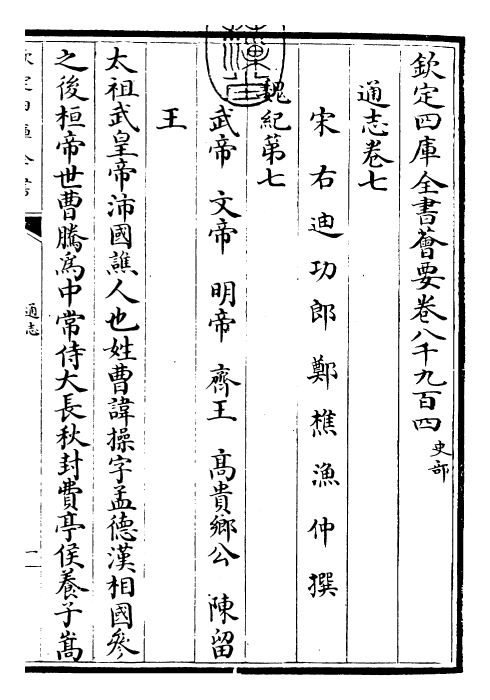 欽定四庫全書薈要卷八千九百四 史部
通志卷七
宋右迪功郎鄭樵漁仲撰
魏紀第七
武帝 文帝 明帝 齊王 高貴鄉公 陳留
王
太祖武皇帝沛國譙人也姓曹諱操字孟德漢相國參
之後桓帝世曹騰為中常侍大長秋封費亭侯養子嵩
通志